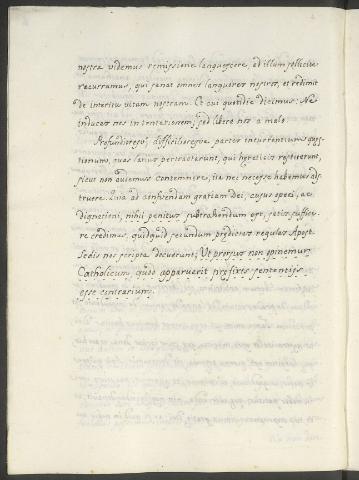 nostra videmus remissione languescere, ad illum sollicite
recurramus, qui sanat omnes languores nostros, et redimit
de interitu vitam nostram. Et cui quotidie dicimus: Ne
inducas nos in tentationem, sed libera nos a malo.
Profundiores, difficilioresque partes incurrentium quęs-
tionum, quas latius pertractarunt, qui hęreticis restiterunt,
sicut non audemus contemnere, ita nec necesse habemus ads-
truere. Quia ad confitendam gratiam Dei, cujus operi, ac
dignationi, nihil penitus subtrahendum est, satis suffice-
re credimus, quidquid secundum prędictas regulas Apost.
Sedis nos scripta docuerunt; Ut prorsus non opinemur
Catholicum, quod apparuerit pręfixis sententiis
esse contrarium.